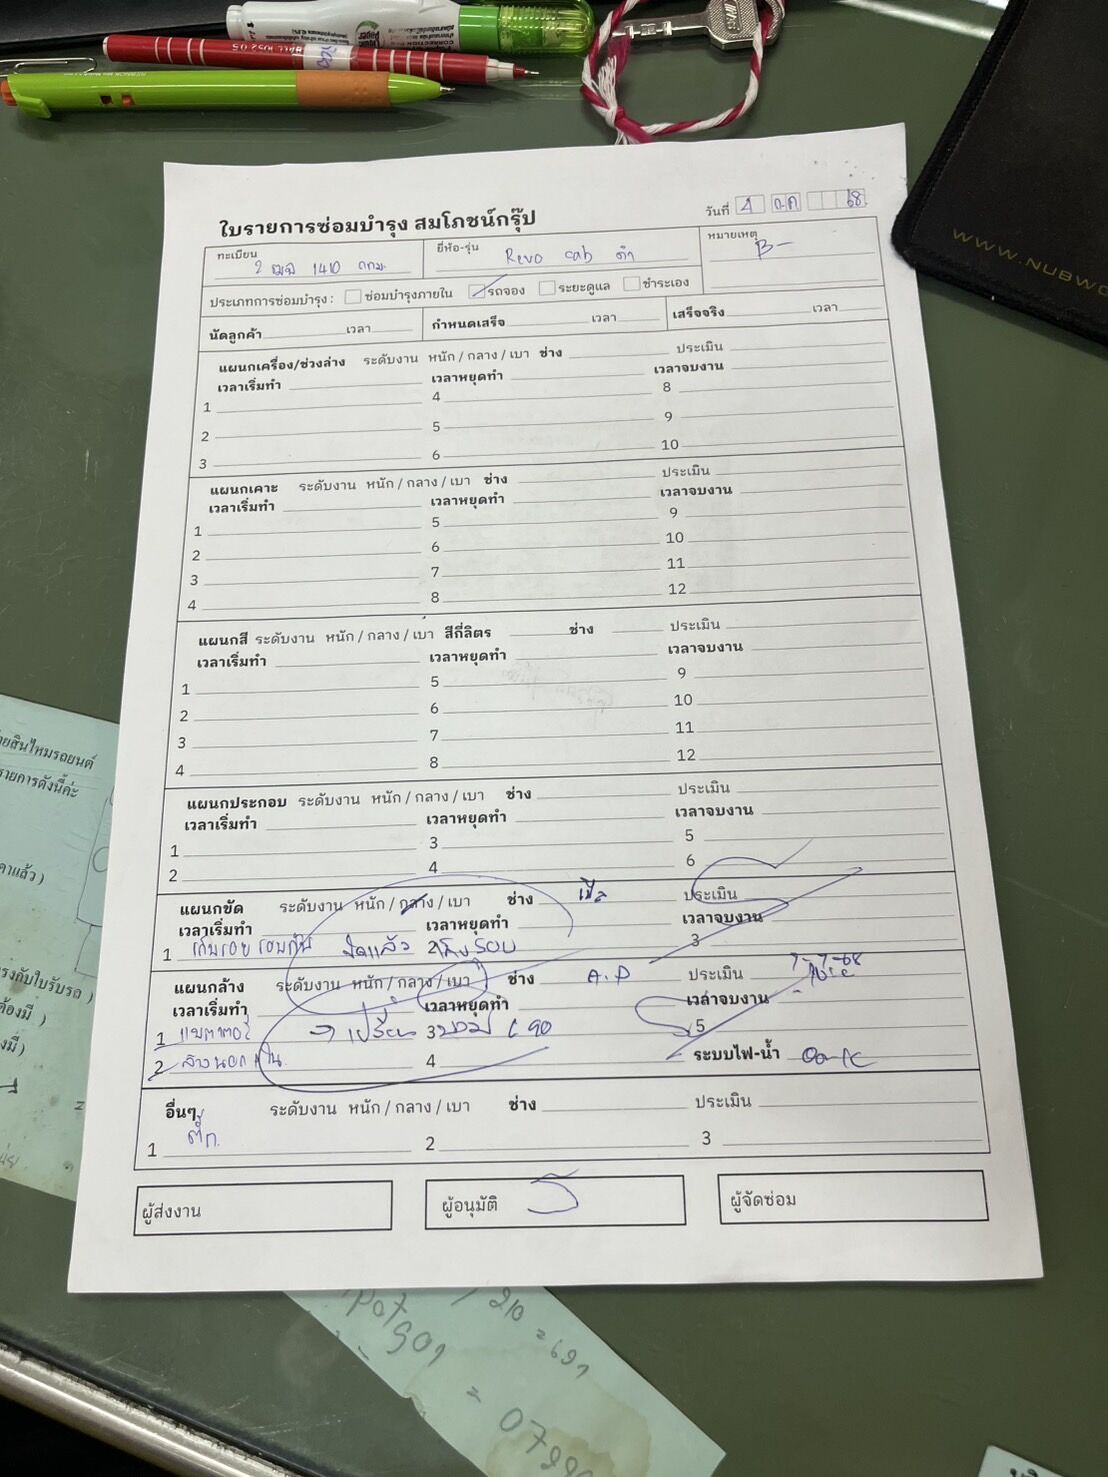 CORRECTION PEN
วันที่ 4 ก.ค 68
ใบรายการซ่อมบำรุง สมโภชน์กรุ๊ป
ทะเบียน ยี่ห้อ-รุ่น หมายเหตุ
2 1410 กทม. Revo cab ดำ B-
ประเภทการซ่อมบำรุง : ซ่อมบำรุงภายใน รถจอง ระยะดูแล ชำระเอง
นัดลูกค้า เวลา กำหนดเสร็จ เวลา เสร็จจริง เวลา
แผนกเครื่อง/ช่วงล่าง ระดับงาน หนัก / กลาง / เบา ช่าง ประเมิน
เวลาเริ่มทำ เวลาหยุดทำ เวลาจบงาน
1 4 8
2 5 9
3 6 10
แผนกเคาะ ระดับงาน หนัก / กลาง / เบา ช่าง ประเมิน
เวลาเริ่มทำ เวลาหยุดทำ เวลาจบงาน
1 5 9
2 6 10
3 7 11
4 8 12
แผนกสี ระดับงาน หนัก / กลาง / เบา สีกี่ลิตร ช่าง ประเมิน
เวลาเริ่มทำ เวลาหยุดทำ เวลาจบงาน
1 5 9
2 6 10
3 7 11
4 8 12
แผนกประกอบ ระดับงาน หนัก / กลาง / เบา ช่าง ประเมิน
เวลาเริ่มทำ เวลาหยุดทำ เวลาจบงาน
1 3 5
2 4 6
แผนกขัด ระดับงาน หนัก / กลาง / เบา ช่าง ประเมิน
เวลาเริ่มทำ เวลาหยุดทำ เวลาจบงาน
1 เก็บรอยรอบคัน ขัดแล้ว 2 3
แผนกล้าง ระดับงาน หนัก / กลาง / เบา ช่าง A.P ประเมิน 7-7-68
เวลาเริ่มทำ เวลาหยุดทำ เวลาจบงาน
1 แบตเตอรี่ → เปลี่ยน 3 5
2 ล้างนอกใน 4 ระบบไฟ-น้ำ
อื่นๆ ระดับงาน หนัก / กลาง / เบา ช่าง ประเมิน
1 2 3
ผู้ส่งงาน ผู้อนุมัติ ผู้จัดซ่อม
WWW.NUBWO
ยสินไหมรถยนต์
รายการดังนี้ค่ะ
าแล้ว )
รงกับใบรับรถ )
ต้องมี )
งมี )
210 = 691